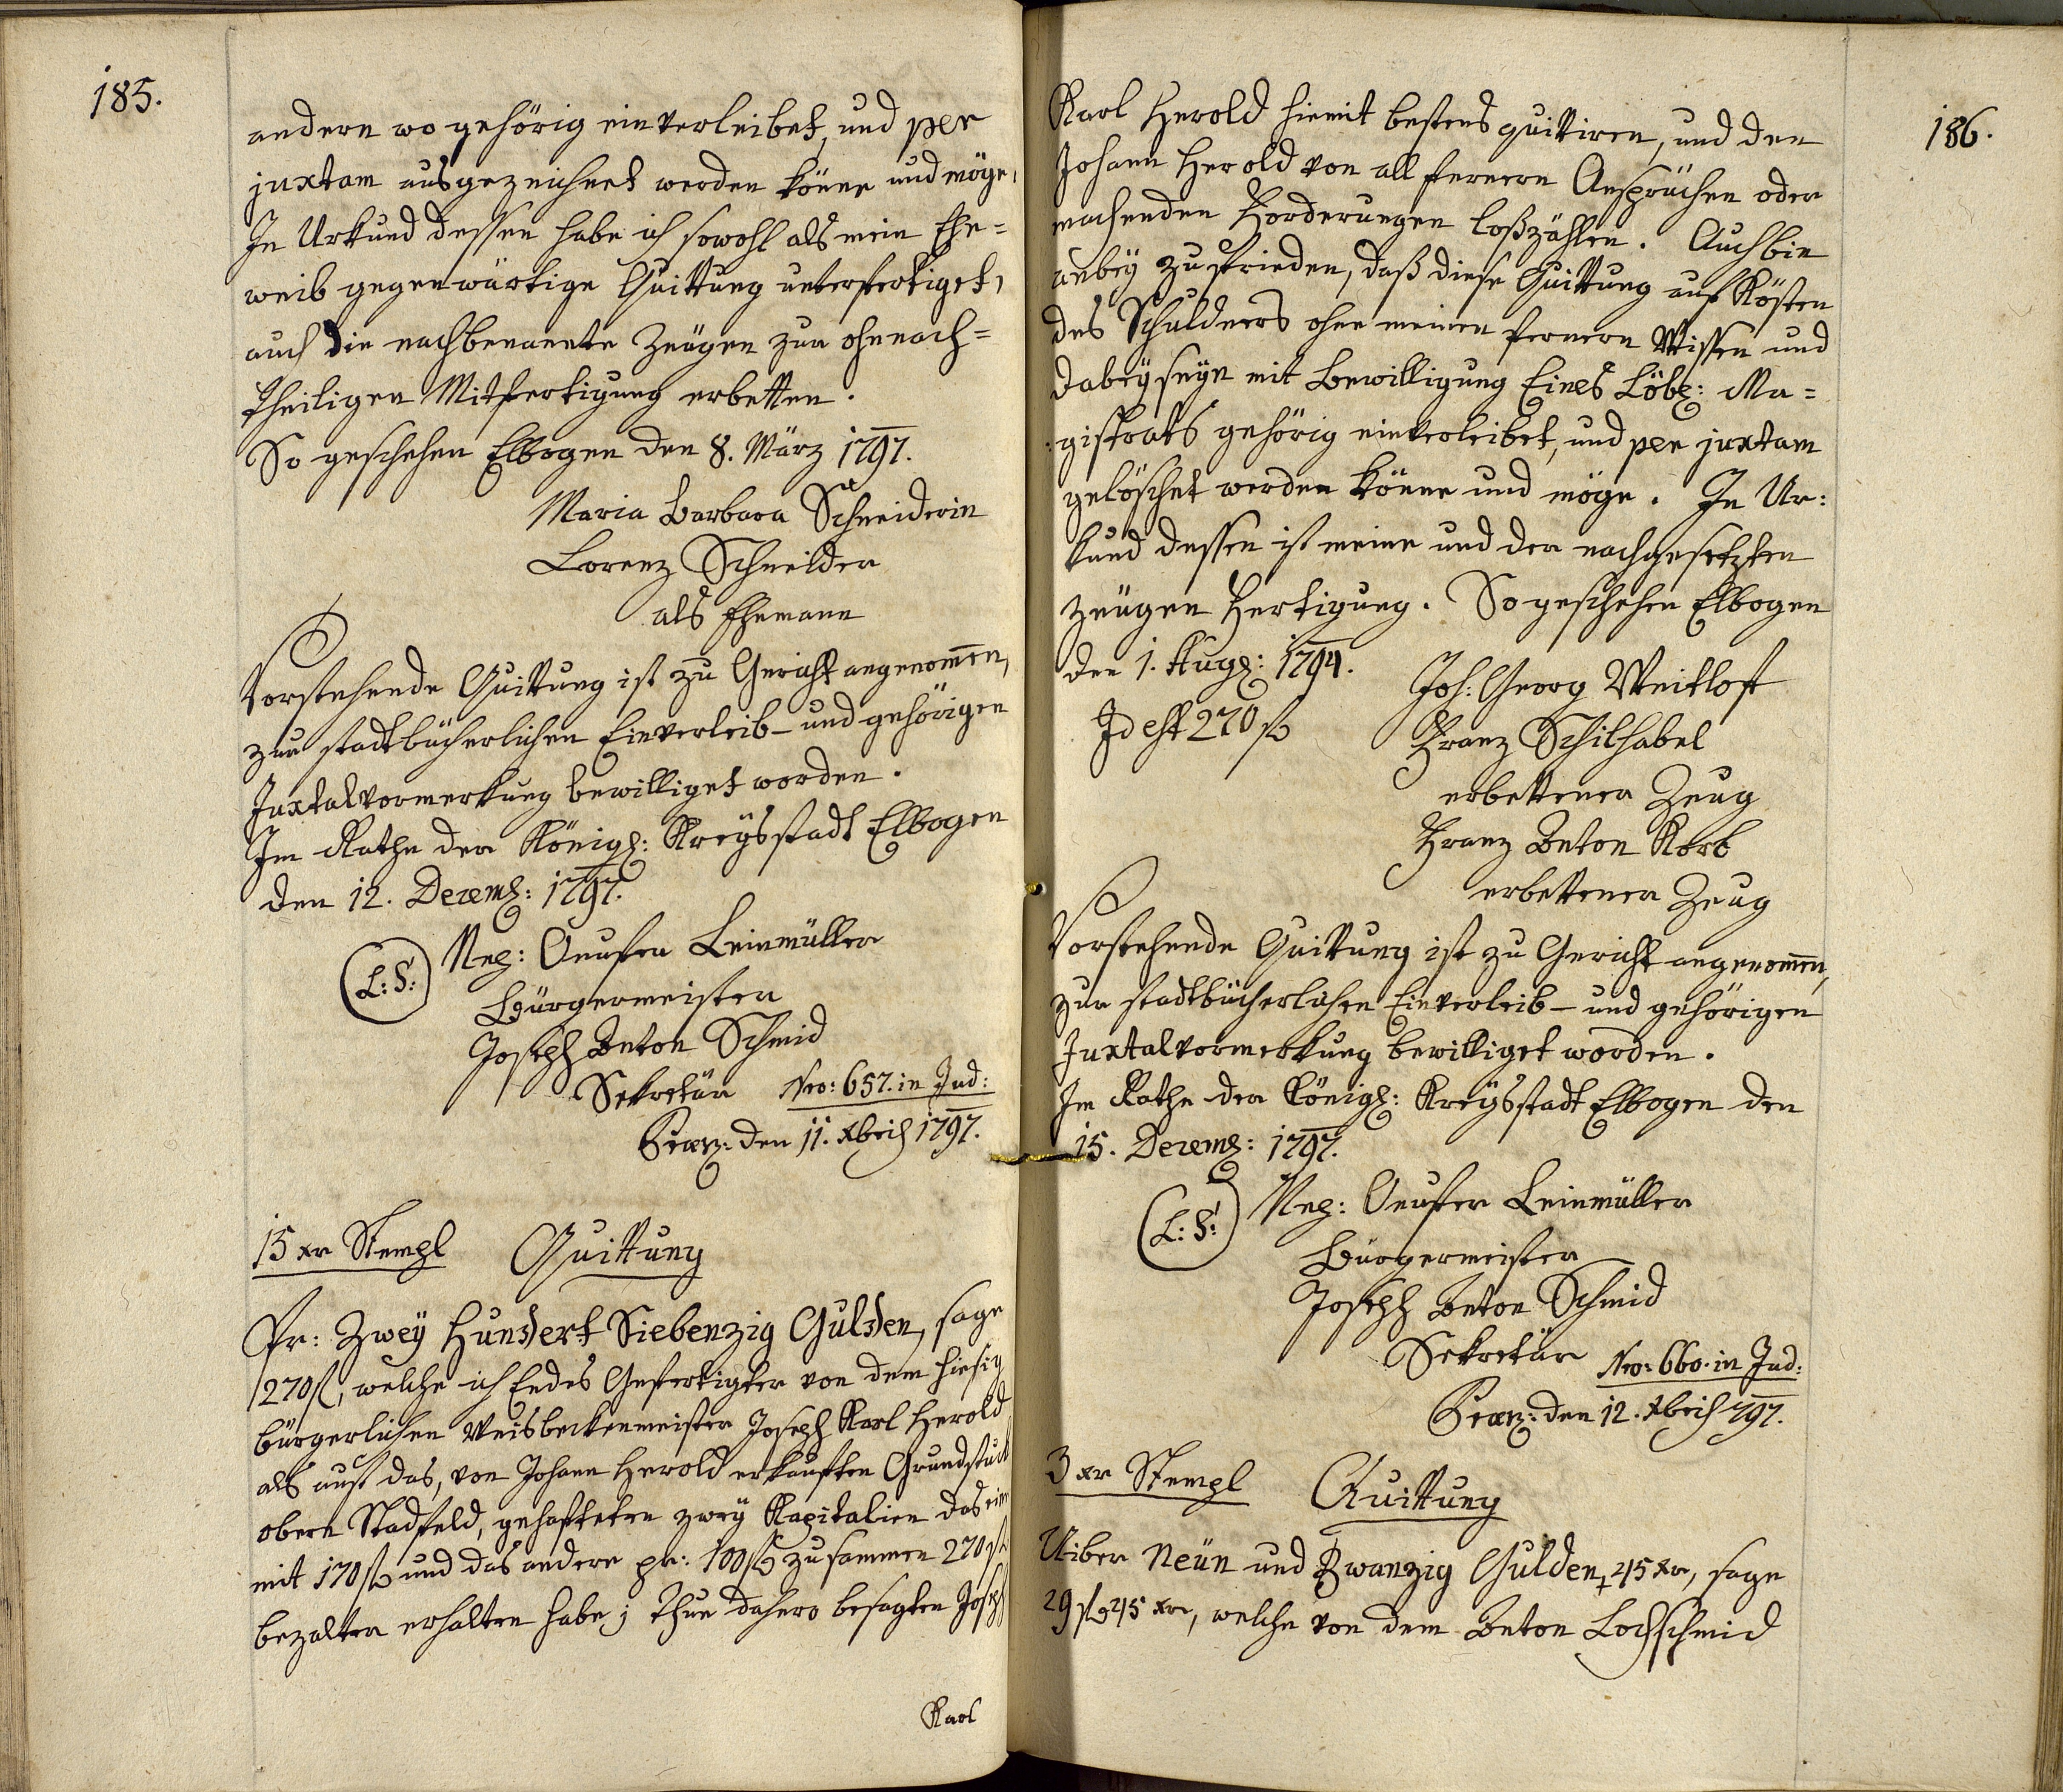 185.
andern wo gehörig einverleibet, und per
juxtam ausgezeichnet werden könne und möge,
In Urkund dessen habe ich sowohl als mein Ehe=
weib gegenwärtige Quittung unterfertiget,
auch die nachbenannte Zeügen zur ohnnach=
theiligen Mitfertigung erbetten.
So geschehen Elbogen den 8. März 1797.
Maria Barbara Schneiderin
Lorenz Schneider
als Ehemann
Vorstehende Quittung ist zu Gericht angenommen,
zur stadtbücherlichen Einverleib- und gehörigen
Juxtalvormerkung bewilliget worden.
Im Rathe der Königl: Kreysstadt Elbogen
den 12. Decemb: 1797.
(L:S:) Leinmüller
Bürgermeister
Joseph Anton Schmid
Sekretär Nro: 657. in Jud:
den 11. Xbris 1797.
15 xr Stempl Quittung
Pr: Zwey Hundert Siebenzig Gulden, sage
270 fl, welche ich Endes Gefertigter von dem hiesig
bürgerlichen Weisbeckenmeister Joseph Karl Herold
als auf das, von Johann Herold erkauften Grundstück
obern Stadtfeld, gehafteten zwey Kapitalien das eine
mit 170 fl und das andere pr: 100 fl zusammen 270 fl
bezalter erhalten habe; Thue dahero besagten Joseph
Karl
186.
Karl Herold hiemit bestens quittiren, und den
Johann Herold von all fernern Ansprüchen oder
machenden Forderungen loßzählen. Auch bin
anbey zufrieden, daß diese Quittung auf Kösten
des Schuldners ohne meinen fernern Wissen und
dabeyseyn mit Bewilligung Eines Löbl: Ma=
:gistrats gehörig einverleibet, und per juxtam
gelöschet werden könne und möge. In Ur:
kund dessen ist meine und der nachgesetzten
Zeügen Fertigung. So geschehen Elbogen
den 1. Aug: 1794. Joh: Georg Weitloft
Id est 270 fl Franz Schilhabel
erbettener Zeug
Franz Anton Korb
erbettener Zeug
Vorstehende Quittung ist zu Gericht angenommen,
zur stadtbücherlichen Einverleib- und gehörigen
Juxtalvormerkung bewilliget worden.
Im Rathe der Königl: Kreysstadt Elbogen den
15. Decemb: 1797.
(L:S:) Leinmüller
Bürgermeister
Joseph Anton Schmid
Sekretär Nro: 660. in Jud:
den 12. Xbris 797.
3 xr Stempl Quittung
Uiber Neün und Zwanzig Gulden, 45 xr, sage
29 fl 45 xr, welche von dem Anton Lochschmid